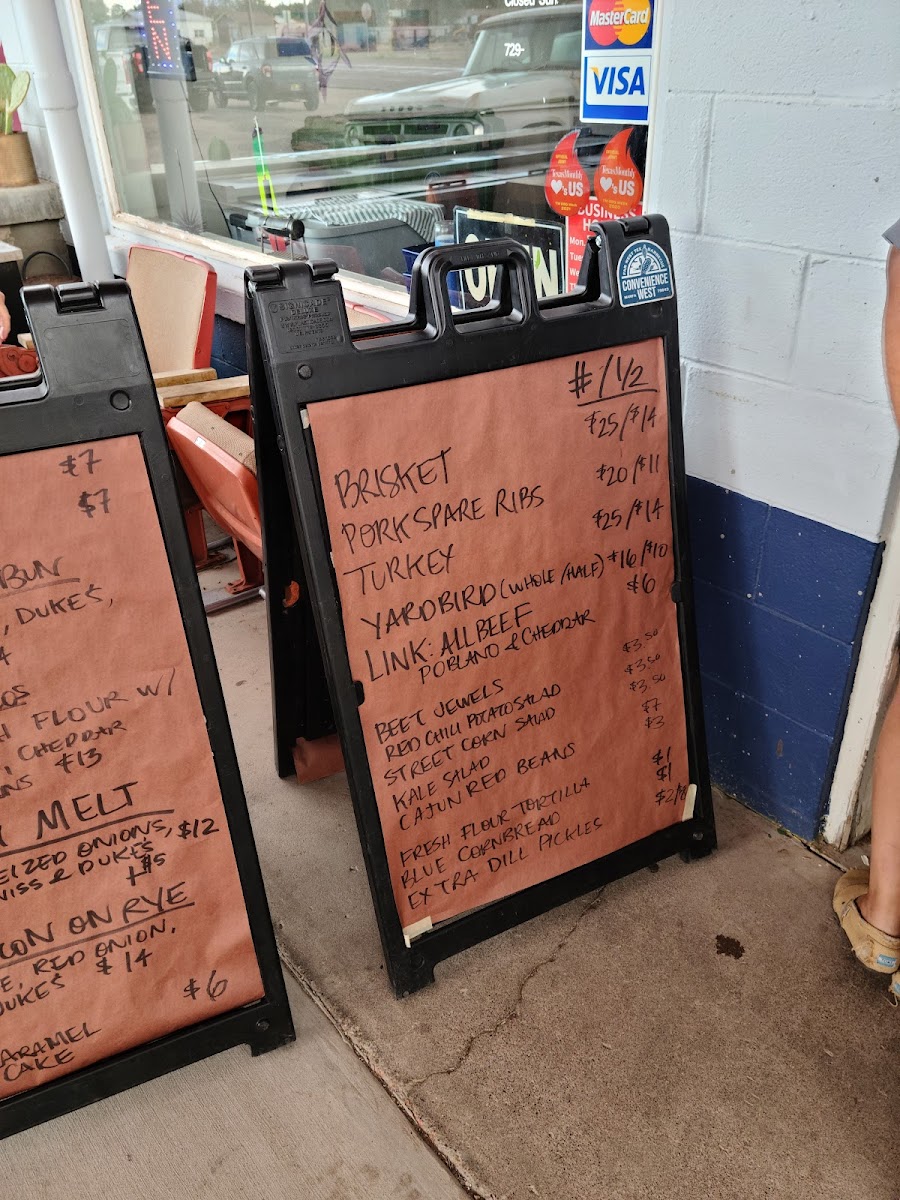 Closed Sun.
729-
MasterCard
VISA
TexasMonthly
♥'s US
TexasMonthly
♥'s US
BUSINESS
Mon.
Tues
We
OPEN
CONVENIENCE
WEST
SIGNICADE
DELUXE
$7
$7
BUN
, DUKE'S,
4
H FLOUR W/
, CHEDDAR
NS $13
MELT
EIZED ONIONS, $12
WISS & DUKES
+$5
CON ON RYE
E, RED ONION,
DUKES $14
$6
ARAMEL
CAKE
#/½
$25/$14
BRISKET
$20/$11
PORK SPARE RIBS
$25/$14
TURKEY
YARDBIRD (WHOLE/HALF) $16/$10
LINK: ALL BEEF $6
POBLANO & CHEDDAR
BEET JEWELS $3.50
RED CHILI POTATO SALAD $3.50
STREET CORN SALAD $3.50
KALE SALAD $7
CAJUN RED BEANS $3
FRESH FLOUR TORTILLA $1
BLUE CORNBREAD $1
EXTRA DILL PICKLES $2/8